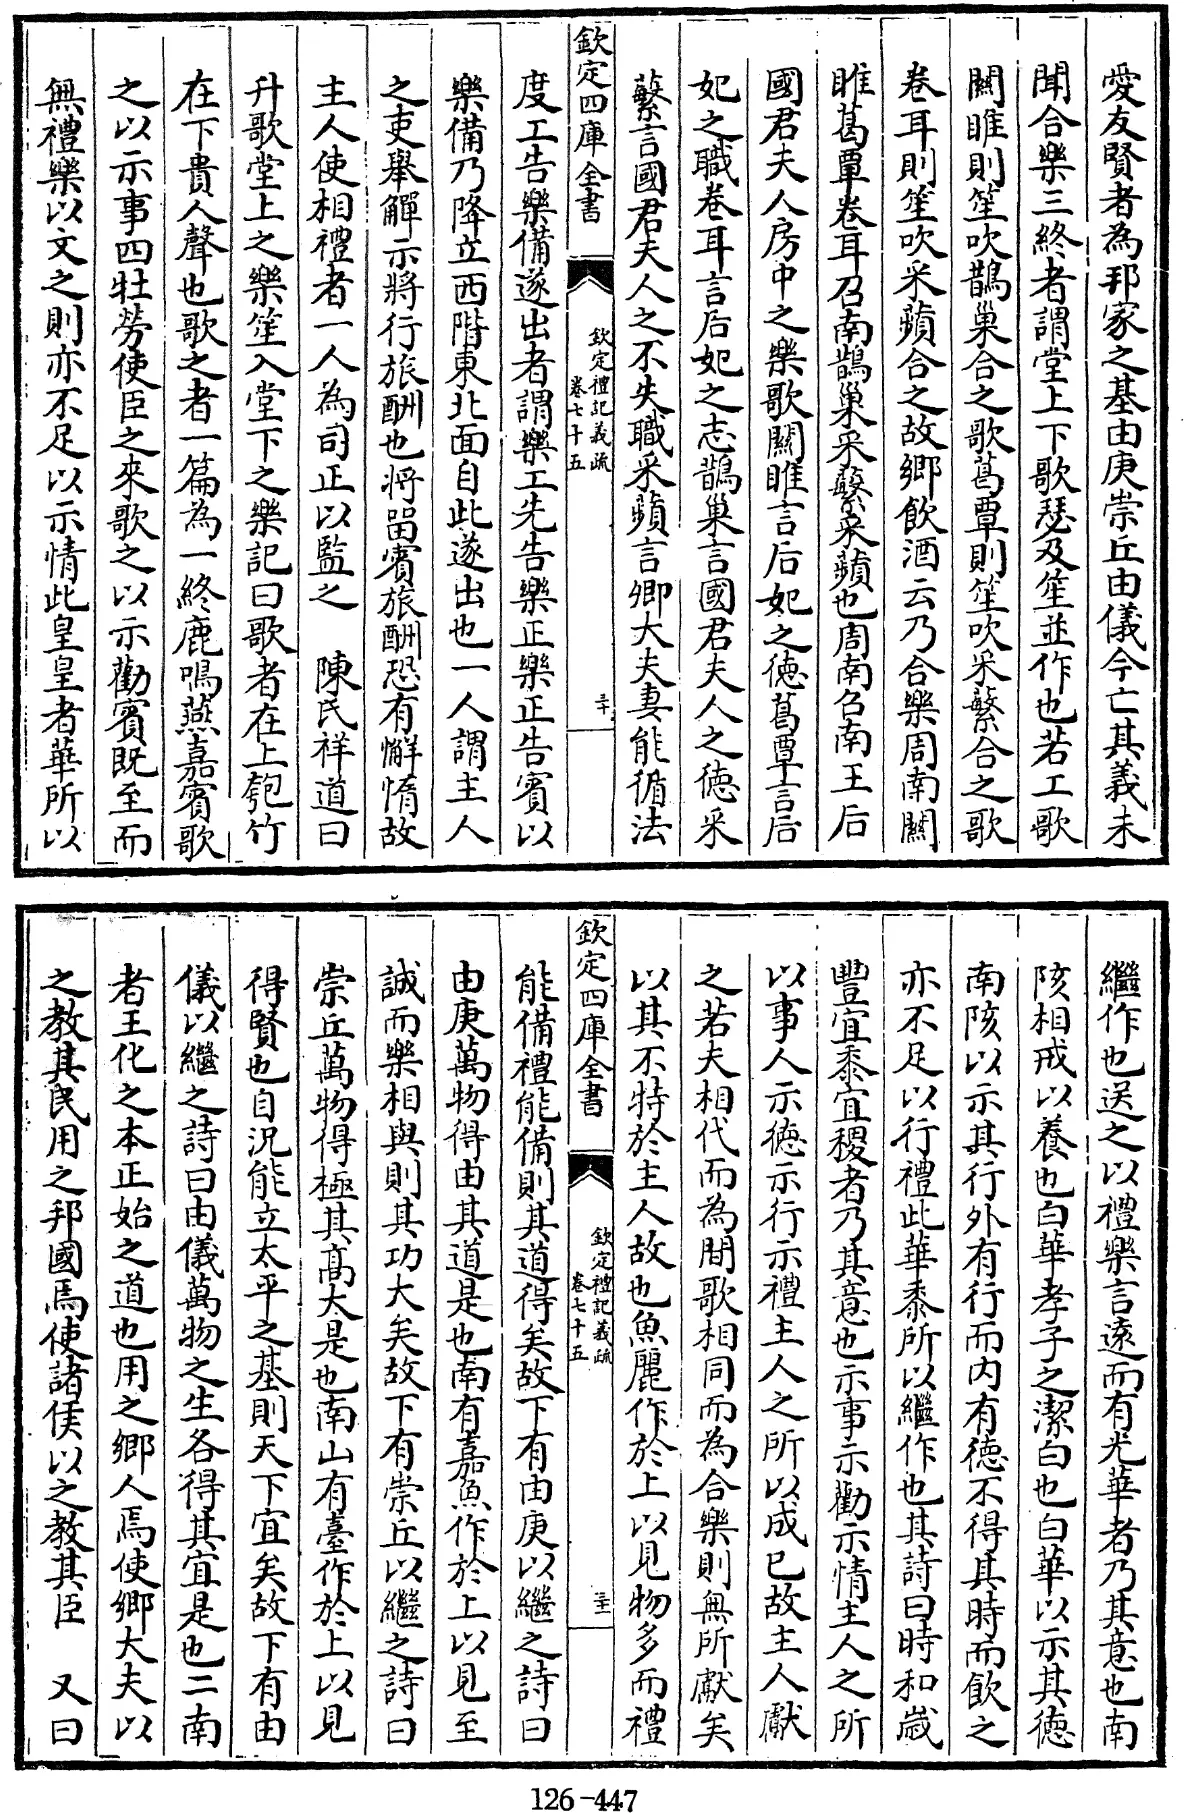 愛友賢者為邦家之基由庚崇丘由儀今亡其義未
聞合樂三終者謂堂上下歌瑟及笙並作也若工歌
關雎則笙吹鵲巢合之歌葛覃則笙吹采蘩合之歌
卷耳則笙吹采蘋合之故鄉飲酒云乃合樂周南關
雎葛覃卷耳召南鵲巢采蘩采蘋也周南召南王后
國君夫人房中之樂歌關雎言后妃之德葛覃言后
妃之職卷耳言后妃之志鵲巢言國君夫人之德采
蘩言國君夫人之不失職采蘋言卿大夫妻能循法
欽定四庫全書
欽定禮記義疏
卷七十五
三十
度工告樂備遂出者謂樂工先告樂正樂正告賓以
樂備乃降立西階東北面自此遂出也一人謂主人
之吏舉觶示將行旅酬也將畱賓旅酬恐有懈惰故
主人使相禮者一人為司正以監之 陳氏祥道曰
升歌堂上之樂笙入堂下之樂記曰歌者在上匏竹
在下貴人聲也歌之者一篇為一終鹿鳴燕嘉賓歌
之以示事四牡勞使臣之來歌之以示勸賓既至而
無禮樂以文之則亦不足以示情此皇皇者華所以
繼作也送之以禮樂言遠而有光華者乃其意也南
陔相戒以養也白華孝子之潔白也白華以示其德
南陔以示其行外有行而内有德不得其時而飲之
亦不足以行禮此華黍所以繼作也其詩曰時和歲
豐宜黍宜稷者乃其意也示事示勸示情主人之所
以事人示德示行示禮主人之所以成已故主人獻
之若夫相代而為間歌相同而為合樂則無所獻矣
以其不特於主人故也魚麗作於上以見物多而禮
欽定四庫全書
欽定禮記義疏
卷七十五
三十一
能備禮能備則其道得矣故下有由庚以繼之詩曰
由庚萬物得由其道是也南有嘉魚作於上以見至
誠而樂相與則其功大矣故下有崇丘以繼之詩曰
崇丘萬物得極其高大是也南山有臺作於上以見
得賢也自況能立太平之基則天下宜矣故下有由
儀以繼之詩曰由儀萬物之生各得其宜是也二南
者王化之本正始之道也用之鄉人焉使鄉大夫以
之教其民用之邦國焉使諸侯以之教其臣 又曰
126-447